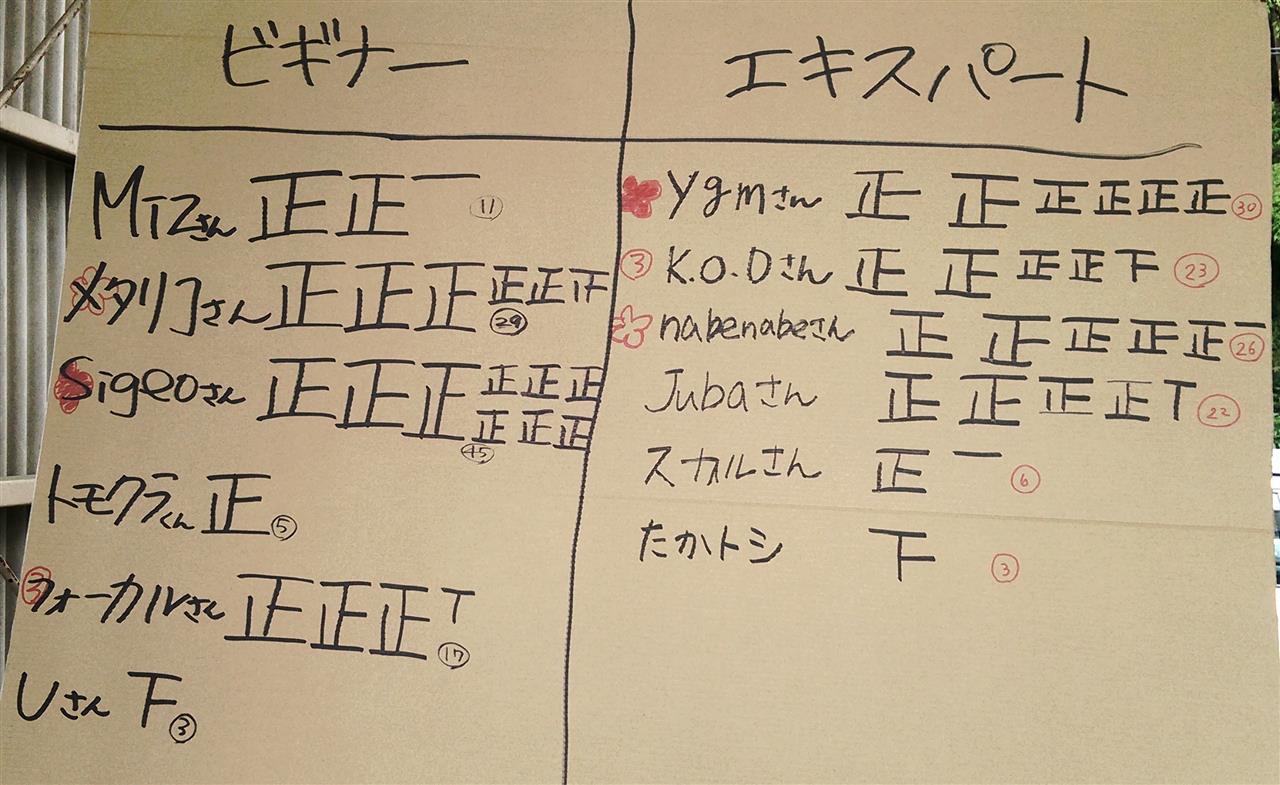 ビギナー
MIZさん 正正一 ⑪
メタリコさん 正正正正正下 ㉙
Sigeoさん 正正正正正正正正正 ㊺
トモクラくん 正 ⑤
③ フォーカルさん 正正正T ⑰
Uさん 下 ③
エキスパート
Ygmさん 正正正正正正 ㉚
③ K.O.Dさん 正正正正下 ㉓
nabenabeさん 正正正正正一 ㉖
Jubaさん 正正正正T ㉒
スカルさん 正一 ⑥
たかトシ 下 ③